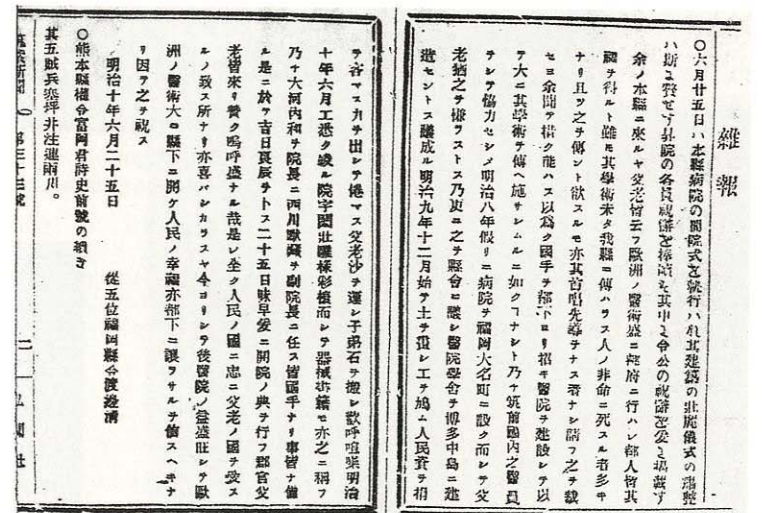 雜報
〇六月廿五日ハ本縣病院の開院式を執行ハれ其建築の壯麗儀式の齊整
ハ斯よ贅せす昇院の各員祝辭を捧讀を其中よ令公の祝辭を爰よ揭載す
余ノ本縣ニ來ルヤ父老皆云フ歐洲ノ醫術盛ニ府ニ行ハレ都人皆其
福ヲ得ルト雖モ其學術未タ我縣ニ傳ハラス人ノ非命ニ死スル者多キ
ナリ且ツ之ヲ傳ント欲スルモ亦其首唱先導ヲナス者ナシ請フ之ヲ
セヨ余聞テ措ク能ハス以爲ク國手ヲ都下ヨリ招キ醫院ヲ建設シテ以
テ大ニ其學術ヲ傳ヘ施サシムルニ如クコナシト乃チ筑前國內之醫員
ヲシテ協力セシメ明治八年假リニ病院ヲ福岡大名町ニ設ク而シテ父
老猶之ヲ慊ラストス乃更ニ之ヲ縣會ニ議シ醫院學舍ヲ博多中島ニ建
造セントス議成ル明治九年十二月始テ土ヲ覆シ工ヲ鳩ム人民資ヲ捐
テ吝マス力ヲ出シテ倦マス父老沙ヲ運シ子弟石ヲ搬シ歡呼喧噪明治
十年六月工悉ク竣ル院宇閎壯彩椽而シテ器械書籍モ亦之ニ稱フ
乃チ大河內和ヲ院長ニ西川ヲ副院長ニ任ス皆國手ナリ事皆ナ備
ル是ニ於テ吉日良辰ヲトス二十五日昧早爰ニ開院ノ典ヲ行フ郡官父
老皆來リ賛ク嗚呼盛ナル哉是レ全ク人民ノ國ニ忠ニ父老ノ國ヲ愛ス
ルノ致ス所ナリ亦喜バシカラスヤ今ヨリシテ後醫院ノ益盛旺シテ歐
洲ノ醫術大ニ縣下ニ開ケ人民ノ幸福亦都下ニ讓ラサルヲ信スヘキナ
リ因テ之ヲ祝ス
明治十年六月二十五日　從五位福岡縣令渡邊淸
〇熊本縣權令富岡君詩史前號の續き
其五賊兵坪井注連雨川。
新聞　第三十三號　二　弘聞社